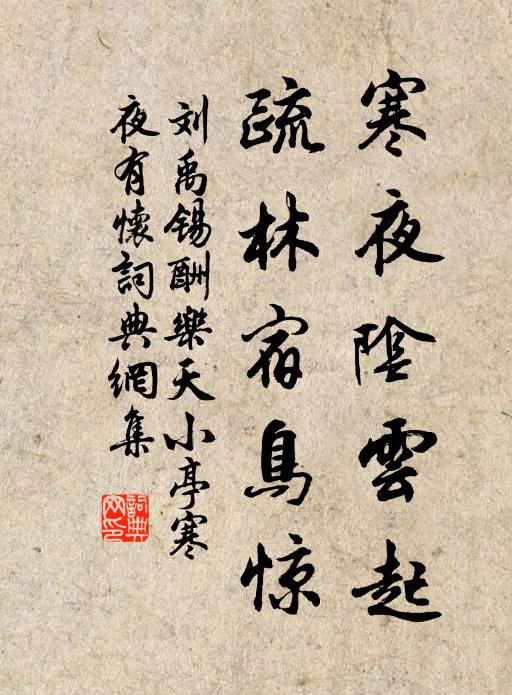 寒夜陰雲起
疏林宿鳥惊
刘禹锡酬樂天小亭寒
夜有懷詞典網集
詞典
网印